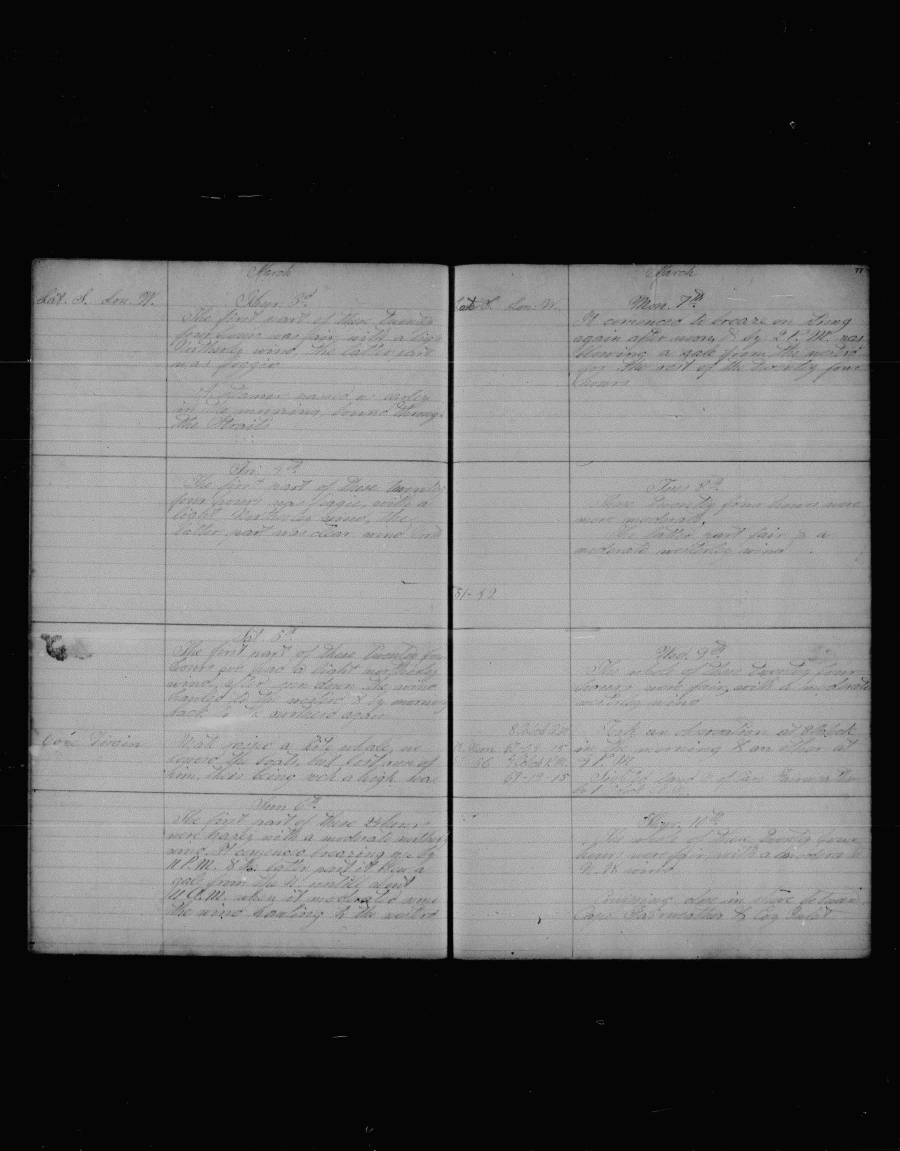 March
Lat. S. Lon. W.
Thur 3d
The first part of these twenty
four hours was fair, with a light
Northerly wind, the latter part
was foggie
A Steamer passed us
in the morning bound through
the Straits
Fri 4th
The first part of these twenty
four hours was foggie, with a
light Northerly wind, the
latter part was clear wind
Sat. 5th
The first part of these twenty four
hours we had a light northerly
wind, after sun down the wind
hauled to the & by morning
back to the northerd again
Cape Virgin
Mate raised a whale, we
lowered the boats, but lost run of
him, there being such a high sea
Sun 6th
The first part of these 24 hours
were hazey with a moderate northerly
wind. It commenced breezing up by
11 P.M. & the latter part it blew a
gale from the N. untill about
11 A.M. when it moderated some
the wind hauling to the westerd
March
77
Lat S. Lon. W.
Mon. 7th
It commenced to breaze on strong
again after noon, & by 2 P.M. was
blowing a gale from the westerd
for the rest of the twenty four
hours
Tues 8th
These twenty four hours were
more moderate,
The latter part fair & a
moderate westerly wind
51-42
Wed. 9th
The whole of these twenty four
hours were fair, with a moderate
westerly wind
Took an observation at 8 Oclock
in the morning & an other at
4 P.M.
Sighted land of Cape Fairweather
Thurs. 10th
The whole of these twenty four
hours were fair with a moderate
N.W. wind
Cruising close in shore between
Cape Fairweather & Coy Inlet